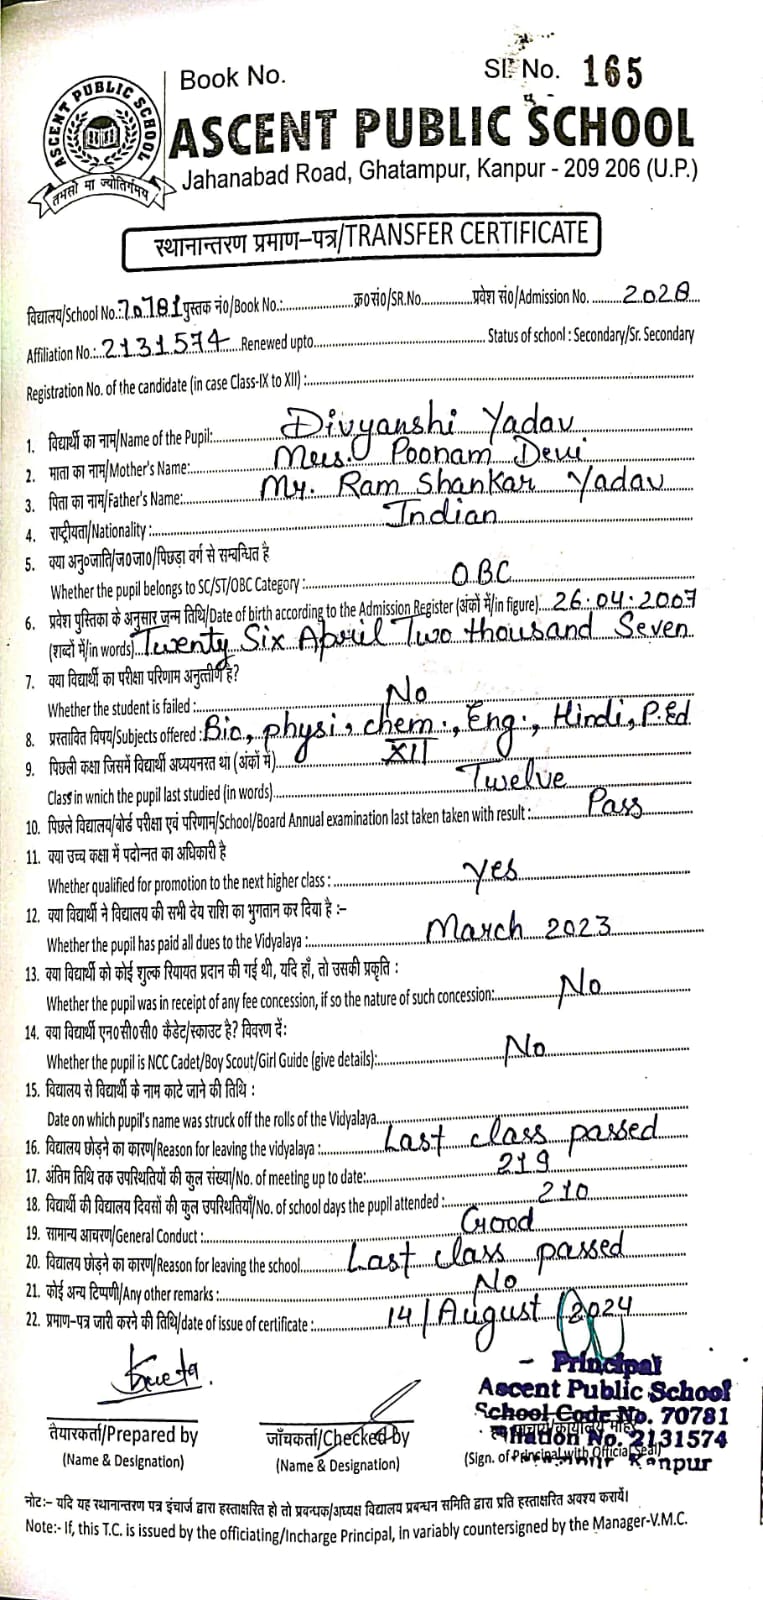 Book No. Sl. No. 165
ASCENT PUBLIC SCHOOL
ASCENT PUBLIC SCHOOL
तमसो मा ज्योतिर्गमय
Jahanabad Road, Ghatampur, Kanpur - 209 206 (U.P.)
स्थानान्तरण प्रमाण–पत्र/TRANSFER CERTIFICATE
विद्यालय/School No.:70781 पुस्तक नं०/Book No.: क्र०सं०/SR.No. प्रवेश सं०/Admission No. 2028
Affiliation No.: 2131574 Renewed upto Status of school : Secondary/Sr. Secondary
Registration No. of the candidate (in case Class-IX to XII) :
1. विद्यार्थी का नाम/Name of the Pupil: Divyanshi Yadav
2. माता का नाम/Mother's Name: Mrs. Poonam Devi
3. पिता का नाम/Father's Name: Mr. Ram Shankar Yadav
4. राष्ट्रीयता/Nationality : Indian
5. क्या अनु०जाति/ज०जा०/पिछड़ा वर्ग से सम्बन्धित है
Whether the pupil belongs to SC/ST/OBC Category : OBC
6. प्रवेश पुस्तिका के अनुसार जन्म तिथि/Date of birth according to the Admission Register (अंकों में/in figure) 26.04.2007
(शब्दों में/in words) Twenty Six April Two thousand Seven
7. क्या विद्यार्थी का परीक्षा परिणाम अनुत्तीर्ण है?
Whether the student is failed : No
8. प्रस्तावित विषय/Subjects offered : Bio, physi, chem., Eng., Hindi, P.Ed
9. पिछली कक्षा जिसमें विद्यार्थी अध्ययनरत था (अंकों में) XII
Class in wnich the pupil last studied (in words) Twelve
10. पिछले विद्यालय/बोर्ड परीक्षा एवं परिणाम/School/Board Annual examination last taken taken with result : Pass
11. क्या उच्च कक्षा में पदोन्नत का अधिकारी है
Whether qualified for promotion to the next higher class : Yes
12. क्या विद्यार्थी ने विद्यालय की सभी देय राशि का भुगतान कर दिया है :–
Whether the pupil has paid all dues to the Vidyalaya : March 2023
13. क्या विद्यार्थी को कोई शुल्क रियायत प्रदान की गई थी, यदि हाँ, तो उसकी प्रकृति :
Whether the pupil was in receipt of any fee concession, if so the nature of such concession: No
14. क्या विद्यार्थी एन०सी०सी० कैडेट/स्काउट है? विवरण दें:
Whether the pupil is NCC Cadet/Boy Scout/Girl Guide (give details): No
15. विद्यालय से विद्यार्थी के नाम काटे जाने की तिथि :
Date on which pupil's name was struck off the rolls of the Vidyalaya
16. विद्यालय छोड़ने का कारण/Reason for leaving the vidyalaya : Last class passed
17. अंतिम तिथि तक उपस्थितियों की कुल संख्या/No. of meeting up to date: 219
18. विद्यार्थी की विद्यालय दिवसों की कुल उपस्थितियाँ/No. of school days the pupil attended : 210
19. सामान्य आचरण/General Conduct : Good
20. विद्यालय छोड़ने का कारण/Reason for leaving the school Last class passed
21. कोई अन्य टिप्पणी/Any other remarks : No
22. प्रमाण-पत्र जारी करने की तिथि/date of issue of certificate : 14/August/2024
Principal
Ascent Public School
School Code No. 70781
No. 2131574
Kanpur
तैयारकर्ता/Prepared by
(Name & Designation)
जाँचकर्ता/Checked by
(Name & Designation)
(Sign. of Principal with Official Seal)
नोट:– यदि यह स्थानान्तरण पत्र इंचार्ज द्वारा हस्ताक्षरित हो तो प्रबन्धक/अध्यक्ष विद्यालय प्रबन्धन समिति द्वारा प्रति हस्ताक्षरित अवश्य करायें।
Note:- If, this T.C. is issued by the officiating/Incharge Principal, in variably countersigned by the Manager-V.M.C.